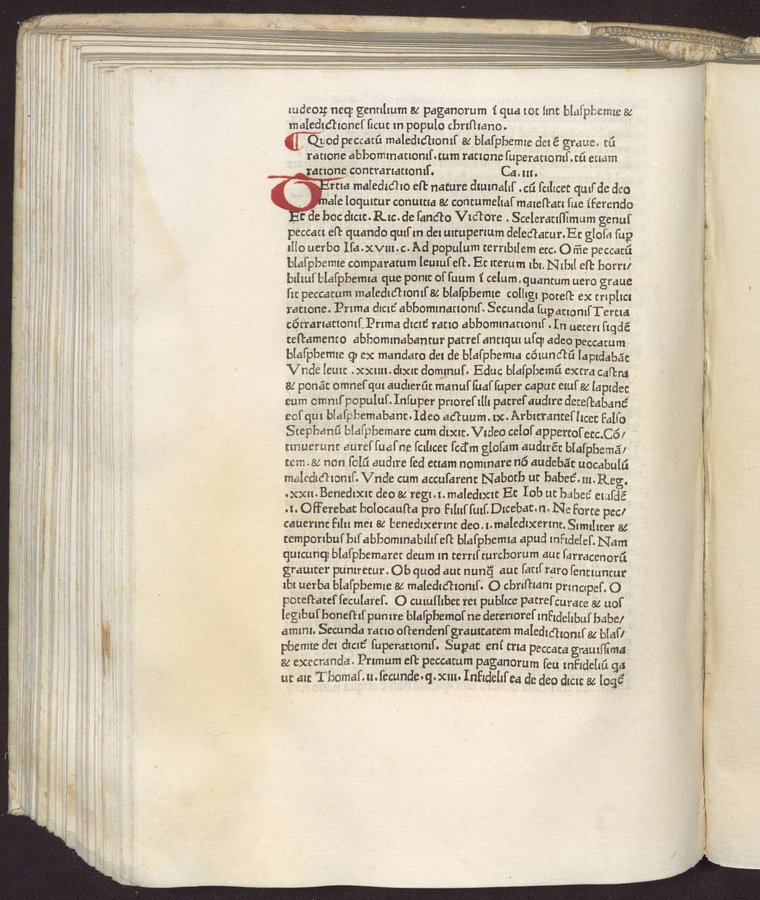 iudeoꝝ neqꝫ gentilium & paganorum ī qua tot sint blasphemie &
maledictiones sicut in populo christiano.
¶ Quod peccatū maledictionis & blasphemie dei ē graue. tū
ratione abhominationis. tum ratione superationis. tū etiam
ratione contrariationis. Ca. III.
TErtia maledictio est nature diuinalis. cū scilicet quis de deo
male loquitur conuitia & contumelias maiestati sue īferendo
Et de hoc dicit. Ric. de sancto Victore. Sceleratissimum genus
peccati est quando quis in dei uituperium delectatur. Et glosa sup
illo uerbo Isa. xviii. c. Ad populum terribilem etc. Om̄e peccatū
blasphemie comparatum leuius est. Et iterum ibi. Nihil est horri/
bilius blasphemia que ponit os suum ī celum. quantum uero graue
sit peccatum maledictionis & blasphemie colligi potest ex triplici
ratione. Prima dicit̄ abhominationis. Secunda supationis Tertia
cōtrariationis. Prima dicit̄ ratio abhominationis. In ueteri siqdē
testamento abhominabantur patres antiqui usqꝫ adeo peccatum
blasphemie ꝙ ex mandato dei de blasphemia cōiunctū lapidabāt
Vnde leuit. xxiiii. dixit dominus. Educ blasphemū extra castra
& ponāt omnes qui audierūt manus suas super caput eius & lapidet
eum omnis populus. Insuper priores illi patres audire detestabant̄
eos qui blasphemabant. Ideo actuum. ix. Arbitrantes licet falso
Stephanū blasphemare cum dixit. Video celos appertos etc. Cō/
tinuerunt aures suas ne scilicet scd̄m glosam audirēt blasphemā/
tem. & non solū audire sed etiam nominare nō audebāt uocabulū
maledictionis. Vnde cum accusarent Naboth ut habet̄. iii. Reg.
.xxii. Benedixit deo & regi. i. maledixit Et Iob ut habet̄ eiusdē
.i. Offerebat holocausta pro filiis suis. Dicebat. n. Ne forte pec/
cauerint filii mei & benedixerint deo. i. maledixerint. Similiter &
temporibus his abhominabilis est blasphemia apud infideles. Nam
quicunqꝫ blasphemaret deum in terris turchorum aut sarracenorū
grauiter puniretur. Ob quod aut nunq̄ aut satis raro sentiuntur
ibi uerba blasphemie & maledictionis. O christiani principes. O
potestates seculares. O cuiuslibet rei publice patres curate & uos
legibus honestis punire blasphemos ne deteriores infidelibus habe/
amini. Secunda ratio ostendens grauitatem maledictionis & blas/
phemie dei dicit̄ superationis. Supat eni tria peccata grauissima
& execranda. Primum est peccatum paganorum seu infideliū qa
ut ait Thomas. ii. secunde. q. xiii. Infidelis ea de deo dicit & loqt̄